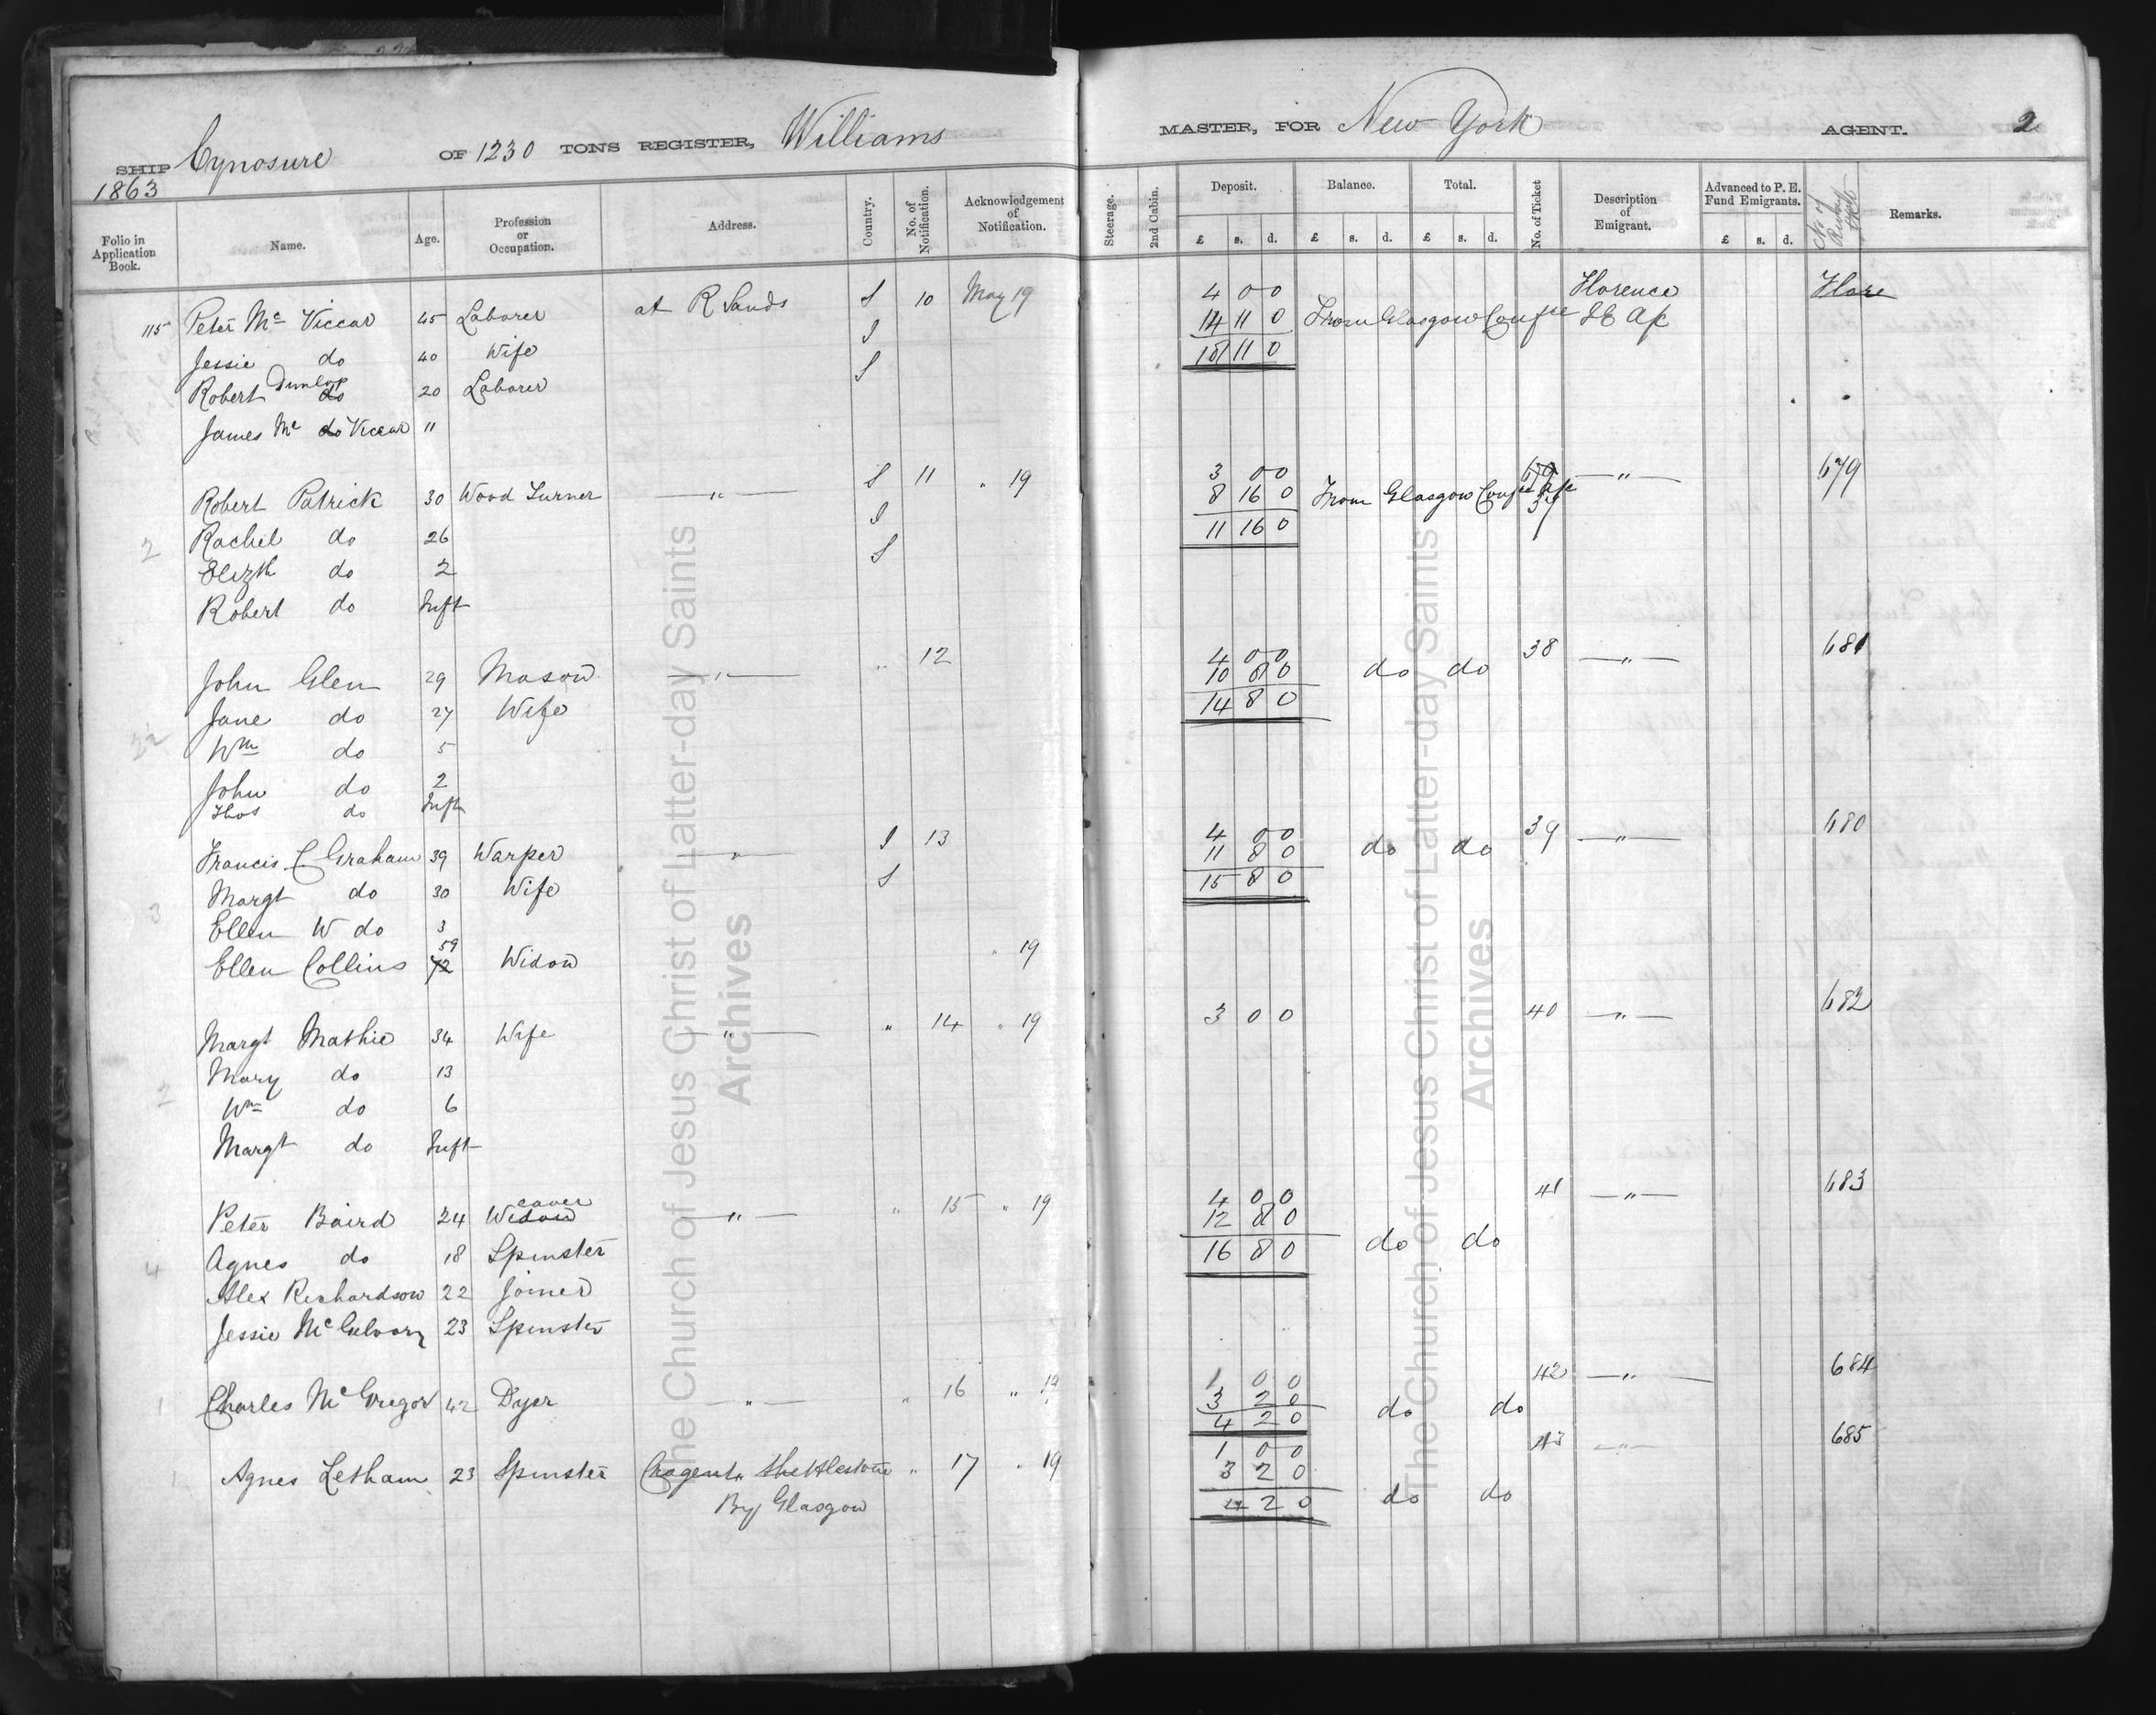 SHIP Cynosure OF 1230 TONS REGISTER, Williams MASTER, FOR New York AGENT. 2
1863
Folio in Application Book. Name. Age. Profession or Occupation. Address. Country. No. of Notification. Acknowledgement of Notification. Steerage. 2nd Cabin. Deposit. £ s. d. Balance. £ s. d. Total. £ s. d. No. of Ticket Description of Emigrant. Advanced to P. E. Fund Emigrants. £ s. d. No of Remarks.
115 Peter Mc Viccar 45 Laborer at R Sands S 10 May 19 4 0 0 Florence Flore
14 11 0 From Glasgow Confce
Jessie do 40 Wife S 18 11 0
Robert Dunlop do 20 Laborer S
James Mc do Viccar 11
Robert Patrick 30 Wood Turner — " — S 11 " 19 3 0 0 — " — 679
8 16 0 From Glasgow Confce 37
Rachel do 26 S 11 16 0
2 Elizth do 2 S
Robert do Inft
John Glen 29 Mason — " — " 12 4 0 0 38 — " — 681
10 8 0 do do
Jane do 27 Wife 14 8 0
Wm do 5
John do 2
Thos do Inft
Francis C Graham 39 Warper — " — S 13 4 0 0 39 — " — 680
11 8 0 do do
Margt do 30 Wife S 15 8 0
3 Ellen W do 3
Ellen Collins 59 72 Widow " 19
Margt Mathie 34 Wife — " — " 14 " 19 3 0 0 40 — " — 682
Mary do 13
2 Wm do 6
Margt do Inft
Peter Baird 24 Weaver Widow — " — " 15 " 19 4 0 0 41 — " — 683
12 8 0
Agnes do 18 Spinster 16 8 0 do do
4 Alex Richardson 22 Joiner
Jessie 23 Spinster
1 Charles McGregor 42 Dyer — " — " 16 " 19 1 0 0 42 — " — 684
3 2 0
4 2 0 do do
1 Agnes Letham 23 Spinster Shettlestone " 17 " 19 1 0 0 43 — " — 685
3 2 0
By Glasgow 4 2 0 do do
The Church of Jesus Christ of Latter-day Saints
Archives
The Church of Jesus Christ of Latter-day Saints
Archives